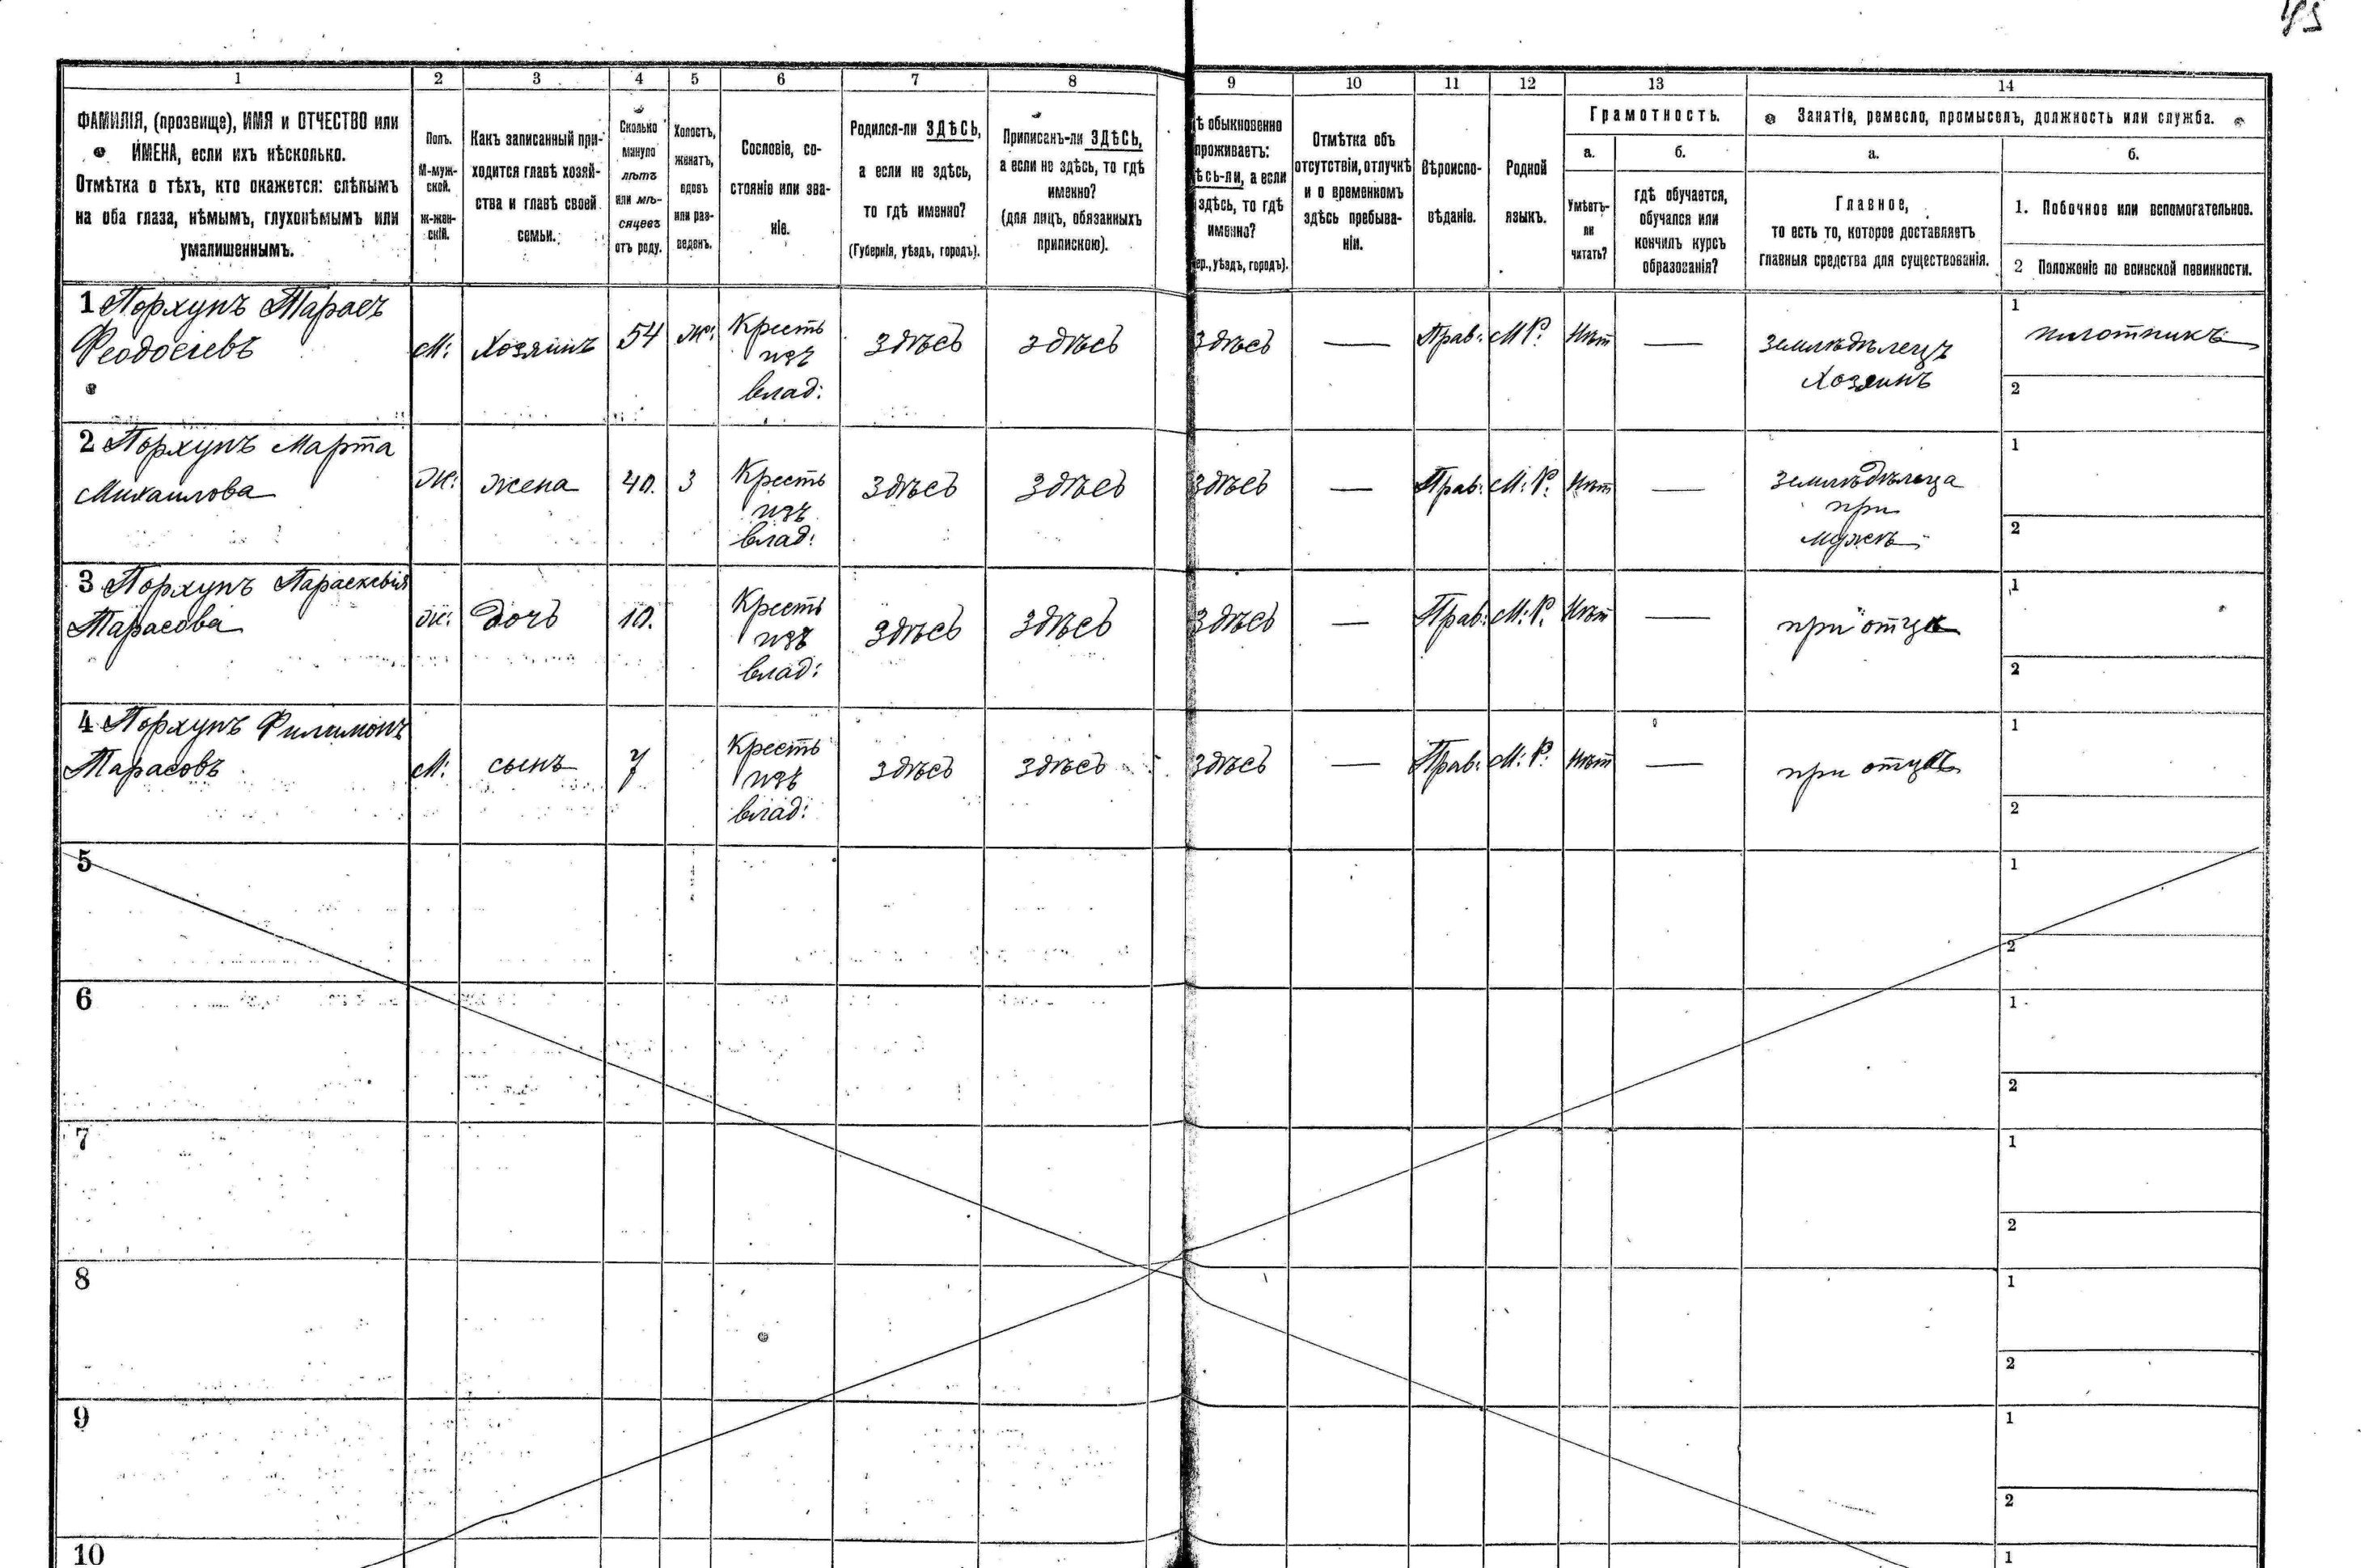 45
1 2 3 4 5 6 7 8 9 10 11 12 13 14
ФАМИЛІЯ, (прозвище), ИМЯ и ОТЧЕСТВО или
ИМЕНА, если ихъ нѣсколько.
Отмѣтка о тѣхъ, кто окажется: слѣпымъ
на оба глаза, нѣмымъ, глухонѣмымъ или
умалишеннымъ.
Полъ.
М-муж-
ской.
ж-жен-
скій.
Какъ записанный при-
ходится главѣ хозяй-
ства и главѣ своей
семьи.
Сколько
минуло
лѣтъ
или мѣ-
сяцевъ
отъ роду.
Холостъ,
женатъ,
вдовъ
или раз-
веденъ.
Сословіе, со-
стояніе или зва-
ніе.
Родился-ли ЗДѢСЬ,
а если не здѣсь,
то гдѣ именно?
(Губернія, уѣздъ, городъ).
Приписанъ-ли ЗДѢСЬ,
а если не здѣсь, то гдѣ
именно?
(для лицъ, обязанныхъ
припискою).
ѣ обыкновенно
проживаетъ:
ѣсь-ли, а если
здѣсь, то гдѣ
именно?
ер., уѣздъ, городъ).
Отмѣтка объ
отсутствіи, отлучкѣ
и о временномъ
здѣсь пребыва-
ніи.
Вѣроиспо-
вѣданіе.
Родной
языкъ.
Грамотность.
а.
Умѣетъ-
ли
читать?
б.
гдѣ обучается,
обучался или
кончилъ курсъ
образованія?
Занятіе, ремесло, промыселъ, должность или служба.
а.
Главное,
то есть то, которое доставляетъ
главныя средства для существованія.
б.
1. Побочное или вспомогательное.
2 Положеніе по воинской повинности.
1 Порхунъ Тарасъ
Феодосіевъ
М: Хозяинъ 54 Ж:
Кресть
изъ
влад:
здѣсь здѣсь здѣсь — Прав: М Р: Нѣт —
земледѣлецъ
Хозяинъ
1
плотникъ
2
2 Порхунъ Марта
Михаилова
Ж: жена 40. З
Кресть
изъ
влад:
здѣсь здѣсь здѣсь — Прав: М: Р: Нѣт —
при
мужѣ
1
2
3 Порхунъ Параскевія
Тарасова
Ж: дочь 10.
Кресть
изъ
влад:
здѣсь здѣсь здѣсь — Прав: М: Р: Нѣт —
при отцѣ
1
2
4 Порхунъ Филимонъ
Тарасовъ
М: сынъ 7
Кресть
изъ
влад:
здѣсь здѣсь здѣсь — Прав: М: Р: Нѣт —
при отцѣ
1
2
5
1
2
6
1
2
7
1
2
8
1
2
9
1
2
10
1